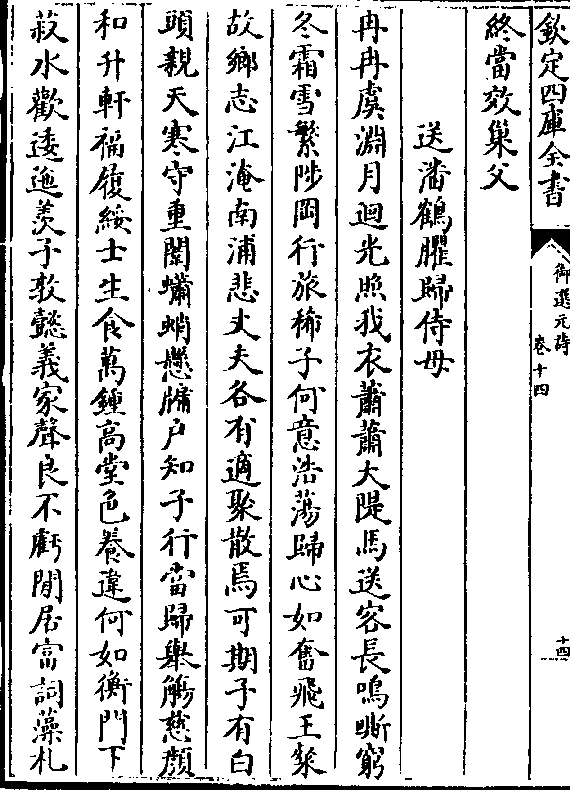 欽定四庫全書
御選元詩
卷十四
十四
終當效巢父
送潘鶴臞歸侍母
冉冉虞淵月迴光照我衣蕭蕭大隄馬送客長鳴嘶窮
冬霜雪繁陟岡行旅稀子何意浩蕩歸心如奮飛王粲
故鄉志江淹南浦悲丈夫各有適聚散焉可期子有白
頭親天寒守重閨蠨蛸懸牖户知子行當歸舉觴慈顔
和升軒福履綏士生食萬鍾高堂色養違何如衡門下
菽水歡逶迤羡子敦懿義家聲良不虧閒居富詞藻札